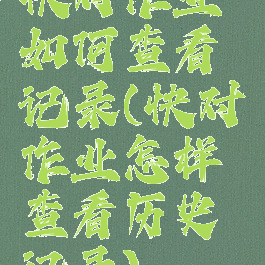 快对作业
如何查看
记录(快对
作业怎样
查看历史
记录)